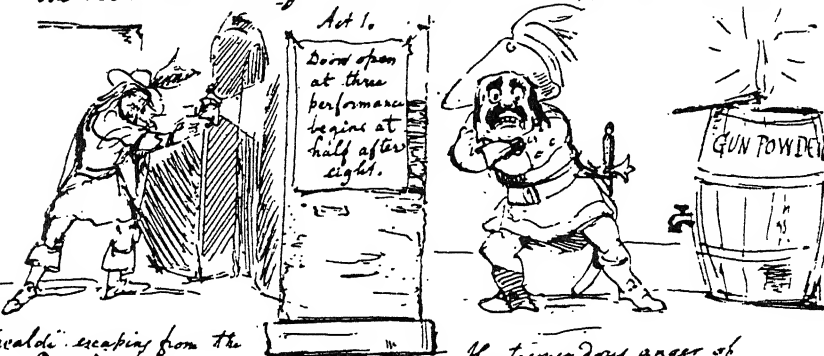 Act 1.
Doors open
at three
performance
begins at
half after
eight.
GUN POWDE
escaping from the
tremendous anger of